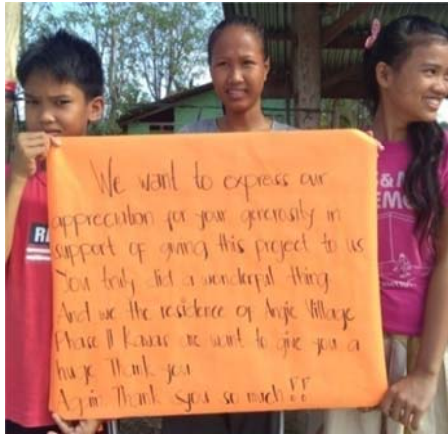 We want to express our
appreciation for your generosity in
support of giving this project to us
You truly did a wonderful thing
And we the residence of Angie Village
Phase II Kawas are want to give you a
huge Thank you
Again Thank you so much!!